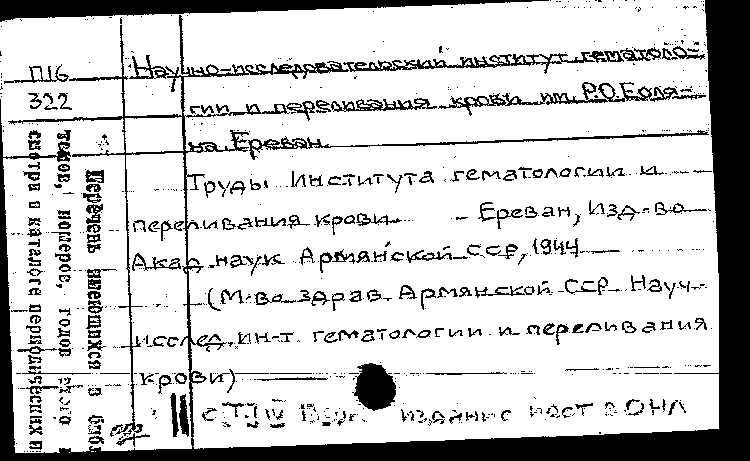 П16
322
Научно-исследовательский институт гематоло-
гии и переливания крови им. Р.О.Еоля-
на, Ереван.
Труды Института гематологии и
переливания крови. - Ереван, Изд-во
Акад. наук Армянской ССР, 1944
(М-во здрав. Армянской ССР. Науч-
исслед. ин-т. гематологии и переливания
крови)
с Т. IV издание пост в ОНЛ
Перечень имеющихся в библ
томов, номеров, годов этого
смотри в каталоге периодических и